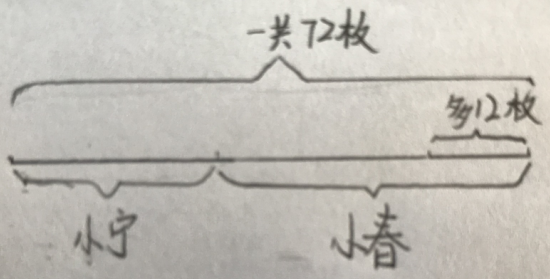 一共72枚
多12枚
小宁
小春